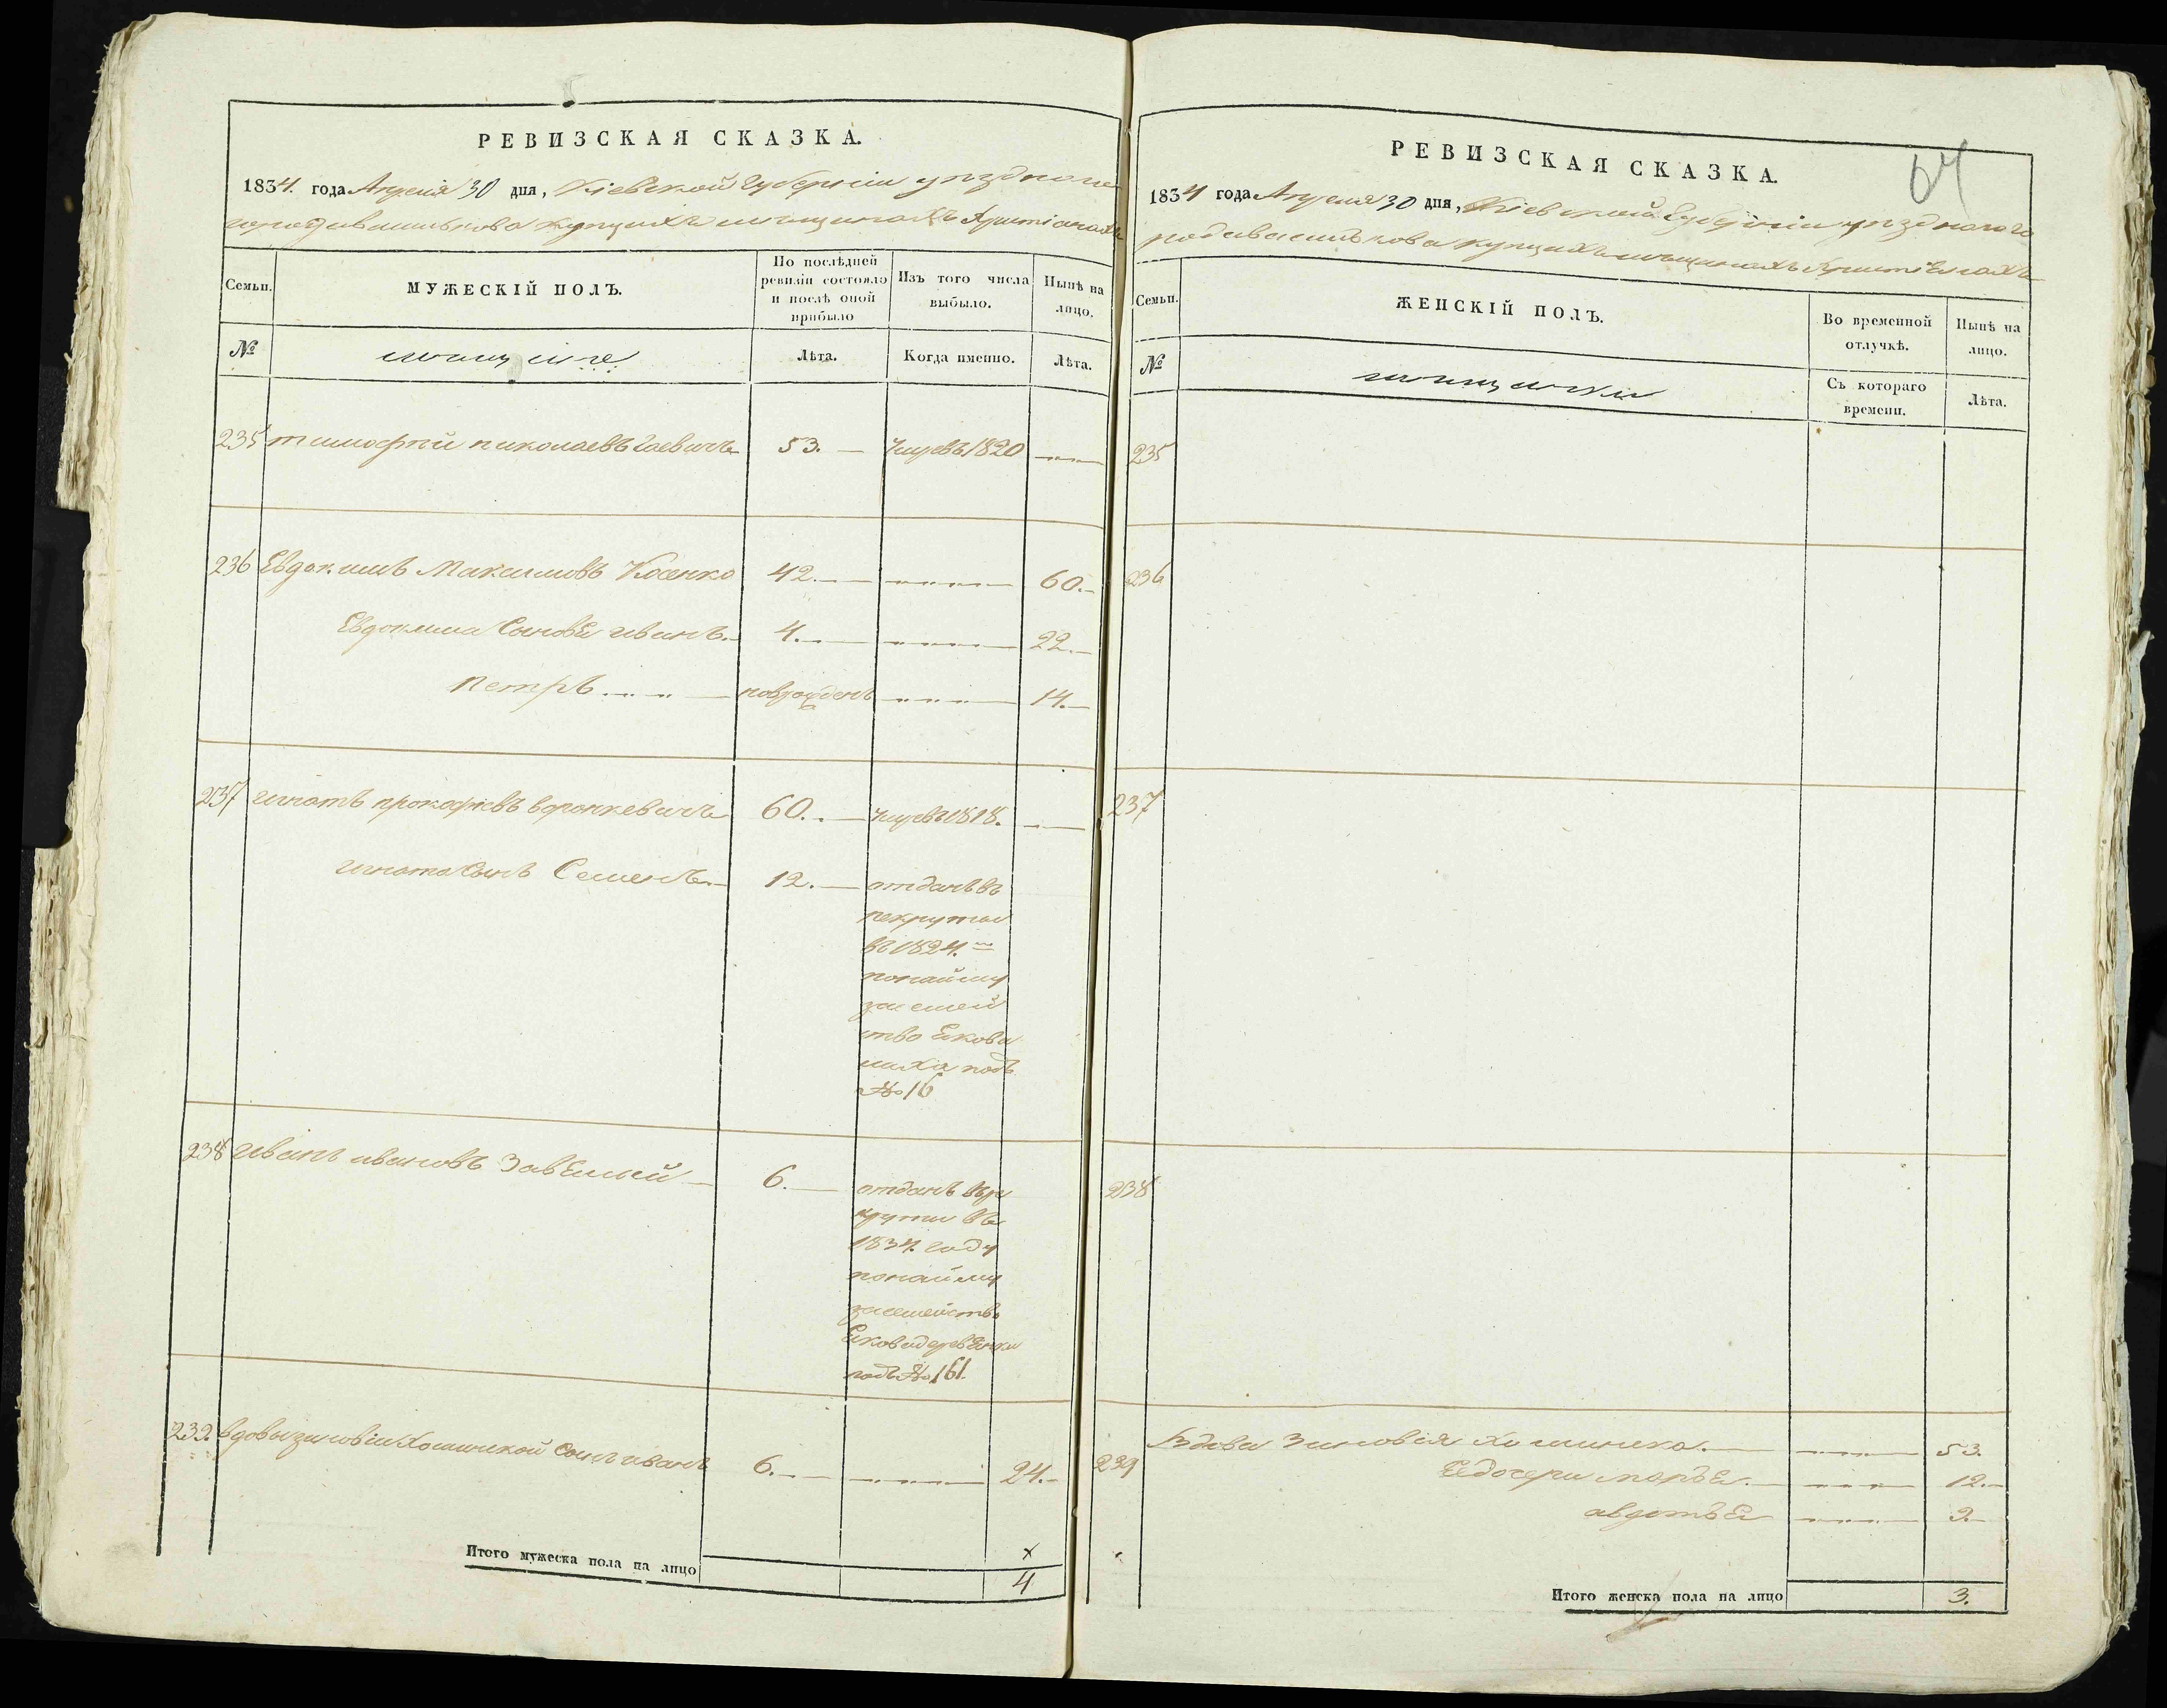 РЕВИЗСКАЯ СКАЗКА.
1834. года Апреля 30 дня, Кіевской Губерніи уезднаго
города василькова купцахъ мещанахъ христіанахъ
Семьи.
МУЖЕСКІЙ ПОЛЪ.
По послѣдней ревизіи состояло и послѣ оной прибыло
Изъ того числа выбыло.
Нынѣ на лицо.
№
мещане
Лѣта.
Когда именно.
Лѣта.
235 тимофей николаевъ 53. — умре въ 1820
236 Евдокимъ Максимовъ Косенко 42. 60.
Евдокима Сыновья иванъ. 4. 22.
петръ новрожденъ 14.
237 игнатъ прокофіевъ воронкевичъ 60. умре въ 1818.
игната Сынъ Семенъ. 12. отданъ въ
рекруты
въ 1824.
понайму
за семей
ство
под
№ 16
238 иванъ ивановъ 6. отданъ въ ре
круты въ
1834. году
понайму
за семейство
подъ № 161.
239. вдовы зиновіи Хоминской Сынъ иванъ 6. 24.
Итого мужеска пола на лицо
х
4
64
РЕВИЗСКАЯ СКАЗКА.
1834 года Апреля 30 дня, Кіевской Губерніи уезднаго го
рода василькова купцахъ мещанахъ христіанахъ
Семьи.
ЖЕНСКІЙ ПОЛЪ.
Во временной отлучкѣ.
Нынѣ на лицо.
№
мещанки
Съ котораго времени.
Лѣта.
235
236
237
238
239 Вдова Зиновія Хоминска. 53.
Ея дочери марья 12.
авдотья 9.
Итого женска пола на лицо 3.